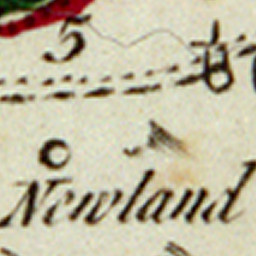 5
Newland